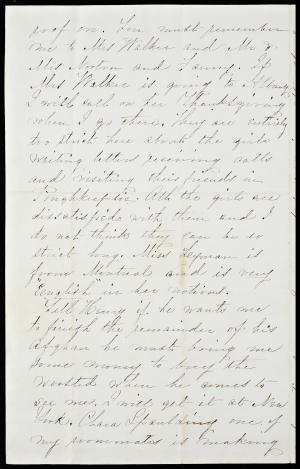 roof on. You must remember
me to Mrs Walker and Mr &
Mrs Norton and Fanny. If
Mrs Walker is going to Albany
I will call on her Thanksgiving
when I go there. They are entirely
too strict here about the girls
writing letters receiving calls
and visiting their friends in
Poughkeepsie. All the girls are
dissatisfied with them and I
do not think they can be so
strict long. Miss Lyman is
from Montreal and is very
"English" in her notions.
Tell Henry if he wants me
to finish the remainder of his
Afghan he must bring me
some money to buy the
worsted when he comes to
see me. I will get it at New
York. Clara Spaulding one of
my roommates is making